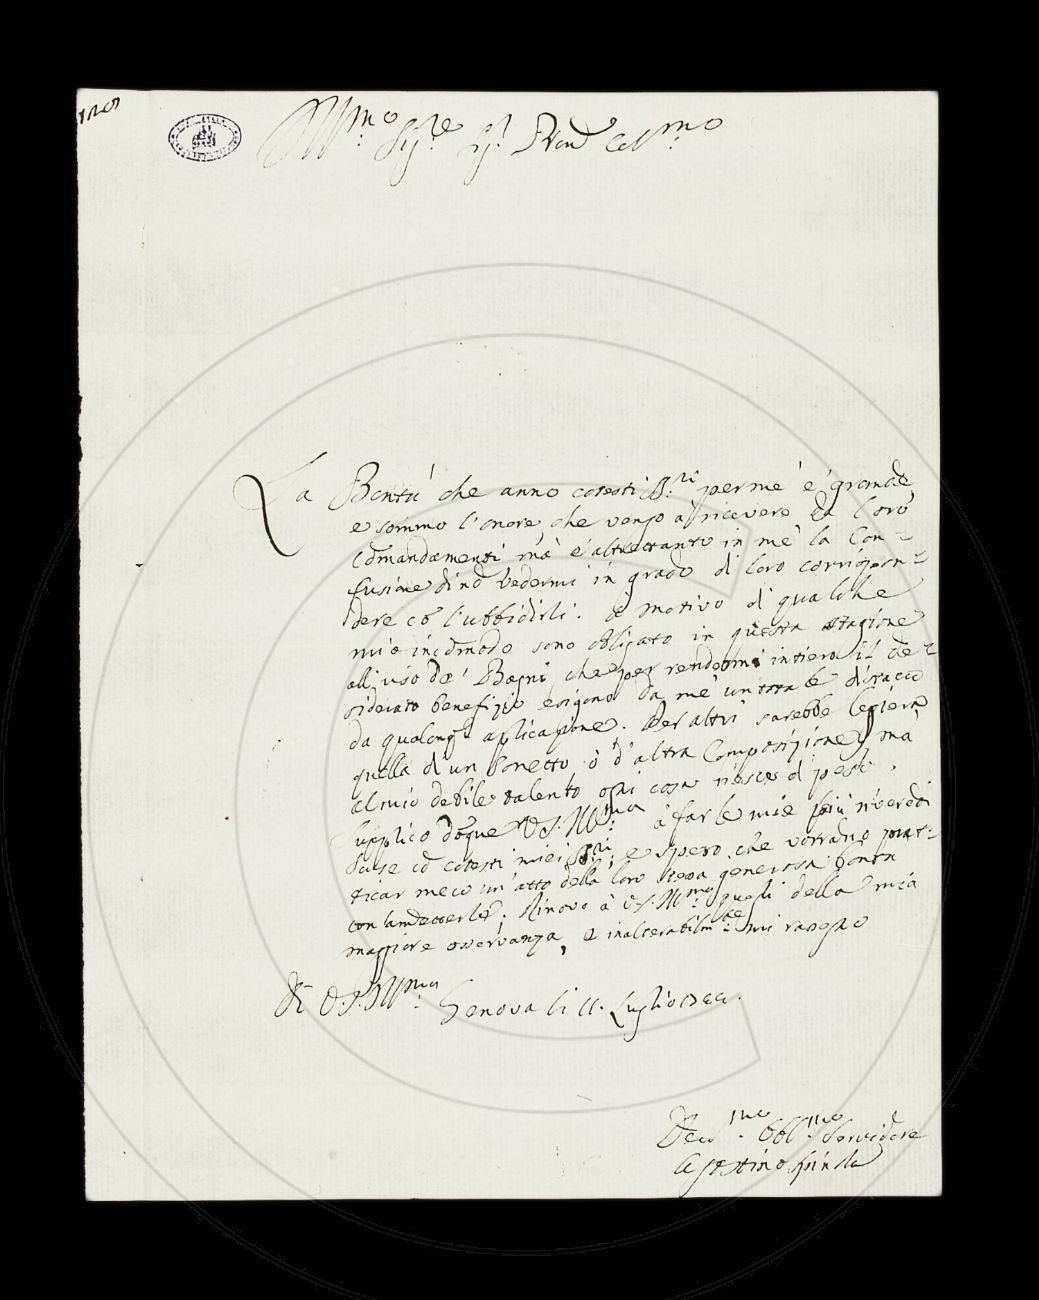 Ill:mo Sig:re Sig:r Pron Col:mo
La Bontà che anno cotesti S:ri per me è grande
e sommo l'onore che vengo a ricevere da loro
Comandamenti mà è altrettanto in me la Con=
fusione di nō vedermi in grado di loro corrispon=
dere cō l'ubbidirli. A motivo di qualche
mio incōmodo sono obligato in questa stagione
all'uso de' Bagni che per rendermi intiero il de=
siderato benefizio esigono da me un totale distacco
da qualonq; aplicazione. Per altri sarebbe legiera
quella d'un Sonetto ò d'altra Composizione mà
al mio debile talento ogni cosa riesce di peso.
Supplico dōque V.S. Ill:ma à far le mie più riverenti
scuse cō cotesti miei S:ri e spero che vorrano prat=
ticar meco un'atto della loro stessa generosa bontà
con
Rinovo à V.S. Ill:ma quegli della mia
maggiore osservanza, e inalterabilm:te mi rasegno
Di V.S. Ill:ma Genova li 11. Luglio
Dev:mo Obbl:mo Servidore
Agostino Spinola